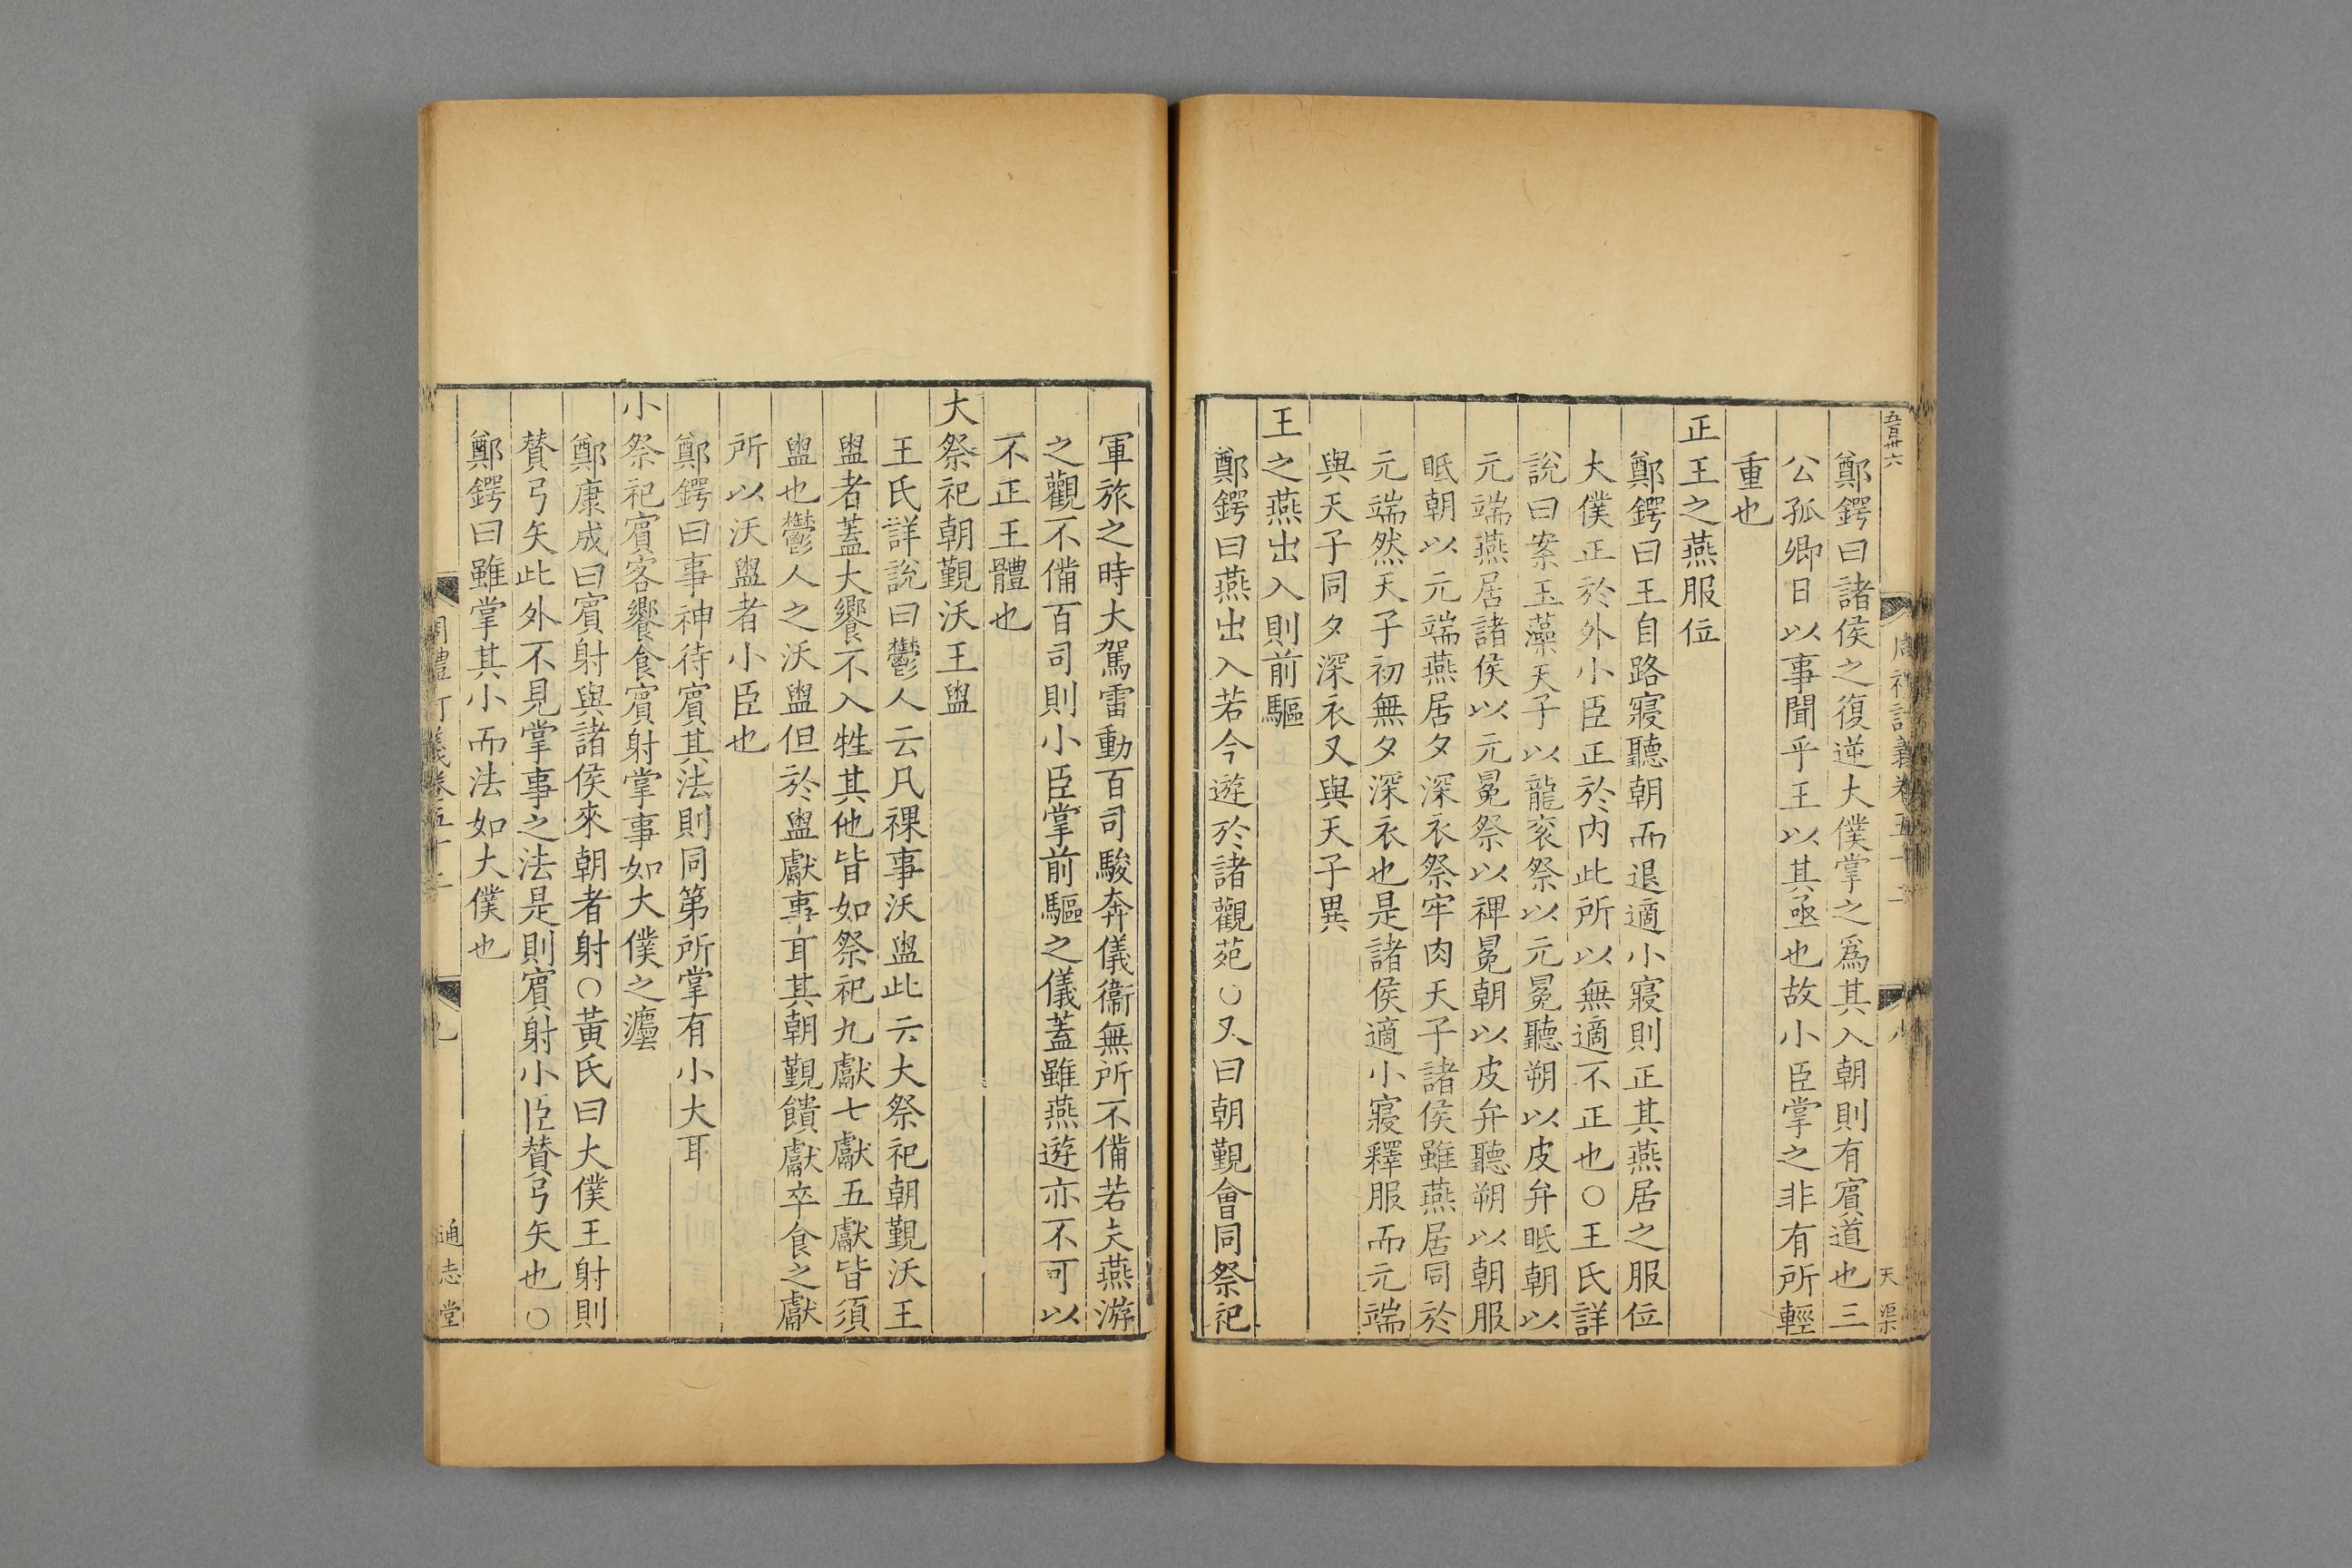 五百廿六
周禮訂義卷五十二
八
天渠
鄭鍔曰諸侯之復逆大僕掌之爲其入朝則有賓道也三
公孤卿日以事聞乎王以其亟也故小臣掌之非有所輕
重也
正王之燕服位
鄭鍔曰王自路寢聽朝而退適小寢則正其燕居之服位
大僕正於外小臣正於内此所以無適不正也○王氏詳
說曰案玉藻天子以龍衮祭以元冕聽朔以皮弁眡朝以
元端燕居諸侯以元冕祭以禆冕朝以皮弁聽朔以朝服
眡朝以元端燕居夕深衣祭牢肉天子諸侯雖燕居同於
元端然天子初無夕深衣也是諸侯適小寢釋服而元端
與天子同夕深衣又與天子異
王之燕出入則前驅
鄭鍔曰燕出入若今遊於諸觀苑○又曰朝覲會同祭祀
軍旅之時大駕雷動百司駿奔儀衞無所不備若夫燕游
之觀不備百司則小臣掌前驅之儀蓋雖燕遊亦不可以
不正王體也
大祭祀朝覲沃王盥
王氏詳說曰鬱人云凡祼事沃盥此云大祭祀朝覲沃王
盥者蓋大饗不入牲其他皆如祭祀九獻七獻五獻皆須
盥也鬱人之沃盥但於盥獻事耳其朝覲饋獻卒食之獻
所以沃盥者小臣也
鄭鍔曰事神待賓其法則同第所掌有小大耳
小祭祀賓客饗食賓射掌事如大僕之灋
鄭康成曰賓射與諸侯來朝者射○黃氏曰大僕王射則
賛弓矢此外不見掌事之法是則賓射小臣賛弓矢也○
鄭鍔曰雖掌其小而法如大僕也
周禮訂義卷五十二
九
通志堂